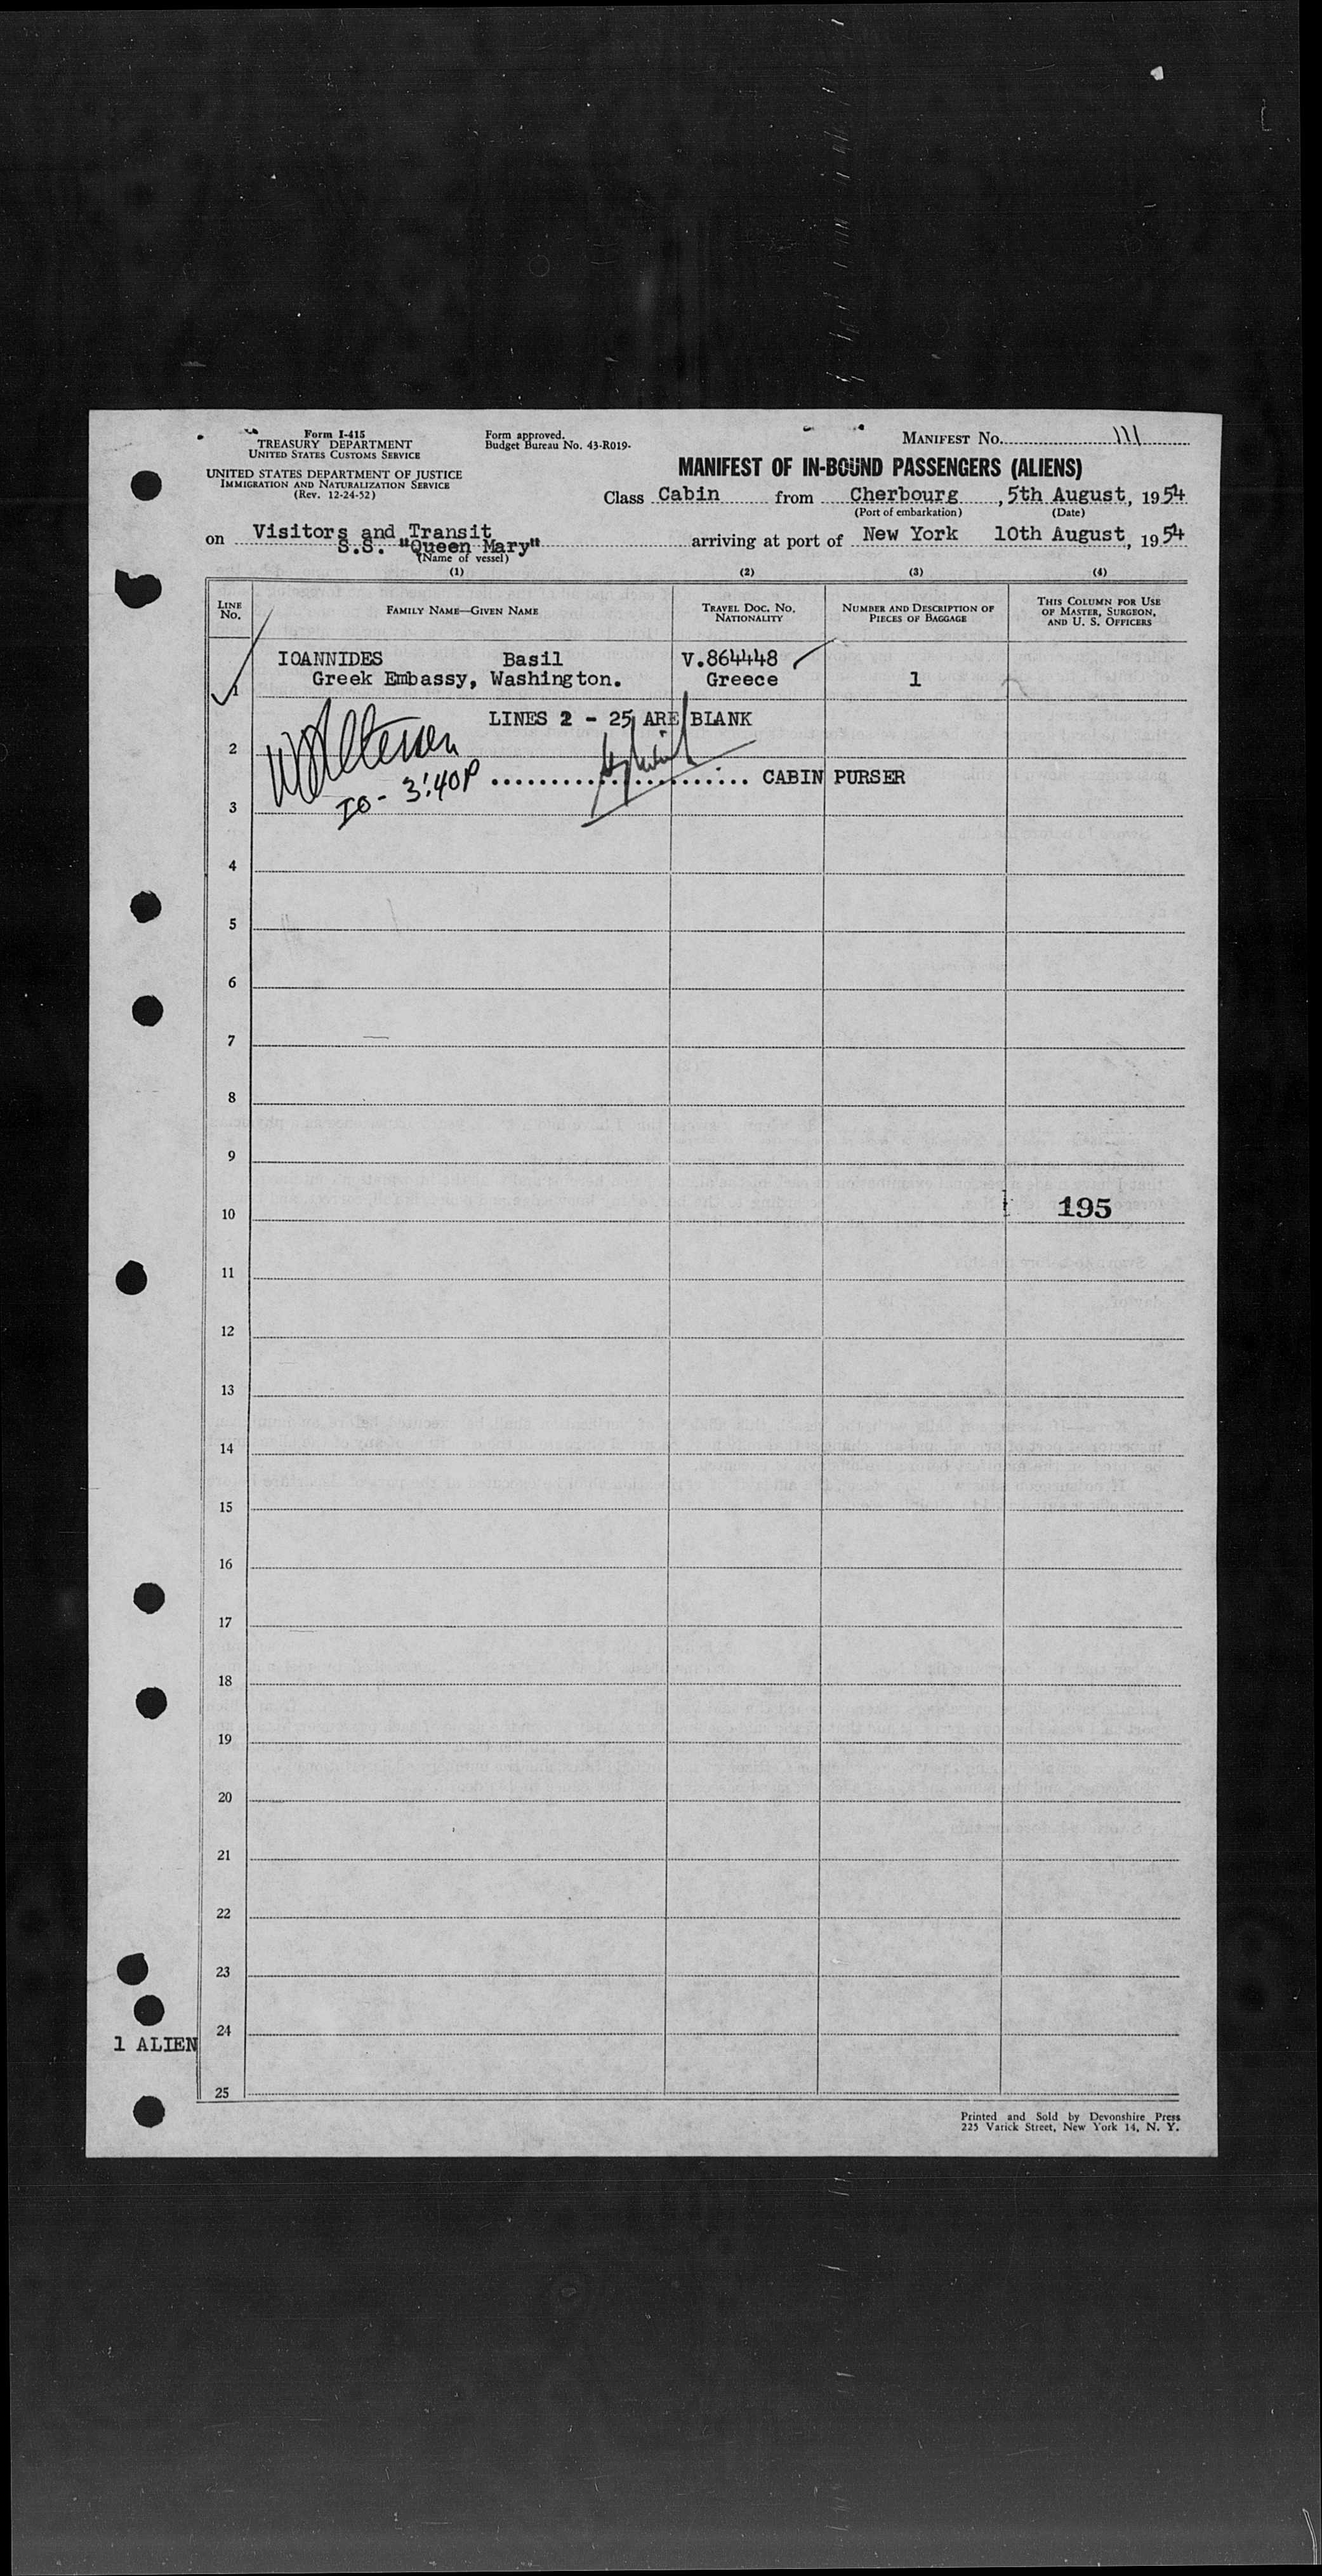 Form I-415
TREASURY DEPARTMENT
UNITED STATES CUSTOMS SERVICE
UNITED STATES DEPARTMENT OF JUSTICE
IMMIGRATION AND NATURALIZATION SERVICE
(Rev. 12-24-52)
Form approved.
Budget Bureau No. 43-R019.
MANIFEST NO. 111
MANIFEST OF IN-BOUND PASSENGERS (ALIENS)
Class Cabin from Cherbourg, 5th August, 1954
(Port of embarkation) (Date)
Visitors and Transit
on S.S. "Queen Mary" arriving at port of New York 10th August, 1954
(Name of vessel)
(1) (2) (3) (4)
LINE NO. FAMILY NAME—GIVEN NAME TRAVEL DOC. NO. NATIONALITY NUMBER AND DESCRIPTION OF PIECES OF BAGGAGE THIS COLUMN FOR USE OF MASTER, SURGEON, AND U. S. OFFICERS
IOANNIDES Basil V.864448
1 Greek Embassy, Washington. Greece 1
LINES 2 - 25 ARE BLANK
2
IO - 3:40P ........................ CABIN PURSER
3
4
5
6
7
8
9
10 195
11
12
13
14
15
16
17
18
19
20
21
22
23
24
1 ALIEN
25
Printed and Sold by Devonshire Press
225 Varick Street, New York 14, N. Y.